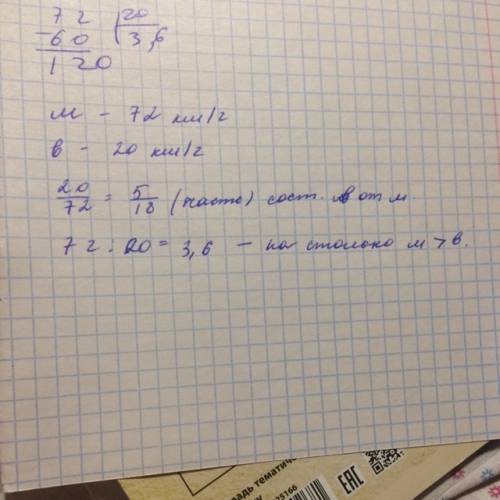 72 20
60 3,6
120
м - 72 км/ч
в - 20 км/ч
20/72 = 5/18 (часть) сост. в от м.
72 : 20 = 3,6 - на столько м > в.
традь тематичес
25166
EAC